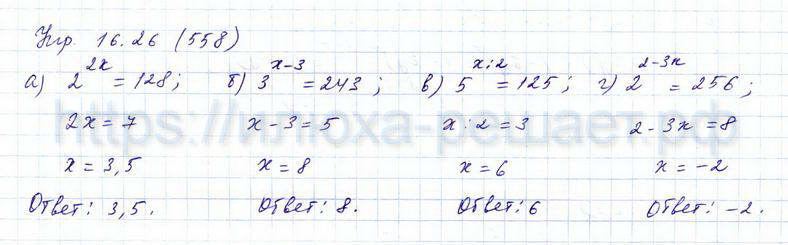 Упр. 16.26 (558)
а) 2^{2x} = 128; б) 3^{x-3} = 243; в) 5^{x:2} = 125; г) 2^{2-3x} = 256;
2x = 7 x - 3 = 5 x : 2 = 3 2 - 3x = 8
x = 3,5 x = 8 x = 6 x = -2
Ответ: 3,5. Ответ: 8. Ответ: 6 Ответ: -2.
https://илюха-решает.рф